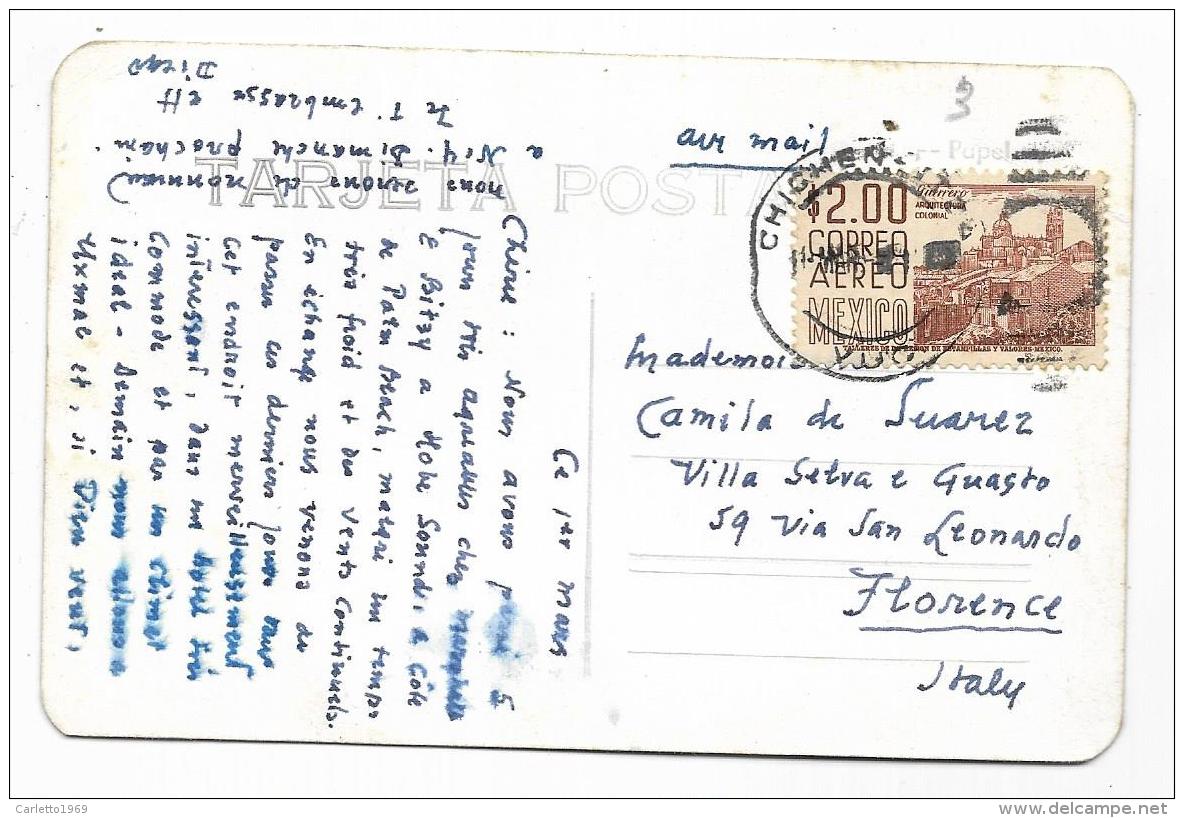 TARJETA POSTAL
air mail
3
Papel
CHICHEN
$2.00
Guerrero
ARQUITECTURA
COLONIAL
CORREO
AEREO
MEXICO
TALLERES DE IMPRESION DE ESTAMPILLAS Y VALORES-MEXICO.
Mademois
Camila de Suarez
Villa Selva e Guasto
59 Via San Leonardo
Florence
Italy
Ce 1er mars
Chérie : Nous avons passé 5
jours très agréables chez
E Bitzy a Hobe Sound, a Côté
de Palm Beach, malgré un temps
très froid et des vents continuels.
En échange nous venons de
passer ces derniers jours dans
Cet endroit merveilleusement
intéressant, dans un hotel très
Commode et par un climat
idéal - demain nous allons a
Uxmal et, si Dieu veut,
nous serons de nouveau
a N.Y. Dimanche prochain.
Je t'embrasse
Diego
Carletto1969
delcampe.net